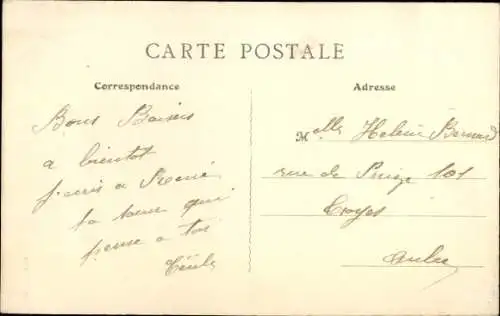 CARTE POSTALE
Correspondance
Bons Baisers
a bientot
ta sœur qui
pense a toi
Cécile
Adresse
Melle Helène Bernard
rue de 101
Troyes
Aube